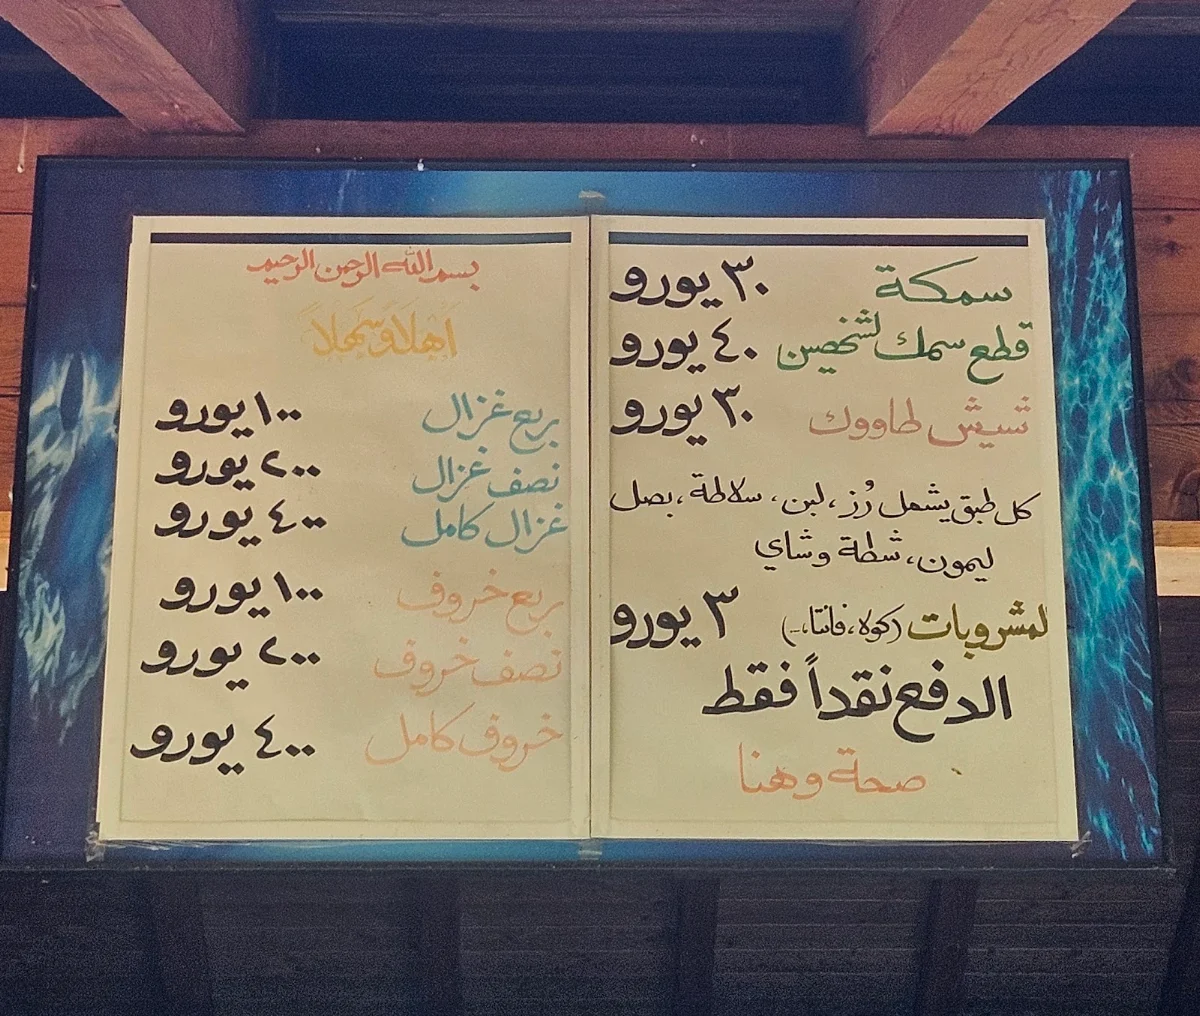 بسم الله الرحمن الرحيم
اهلاً وسهلاً
ربع غزال ١٠٠ يورو
نصف غزال ٢٠٠ يورو
غزال كامل ٤٠٠ يورو
ربع خروف ١٠٠ يورو
نصف خروف ٢٠٠ يورو
خروف كامل ٤٠٠ يورو
سمكة ٣٠ يورو
قطع سمك لشخصين ٤٠ يورو
شيش طاووك ٣٠ يورو
كل طبق يشمل رُز، لبن، سلاطة، بصل
ليمون، شطة وشاي
لمشروبات (كولا، فانتا،...) ٣ يورو
الدفع نقداً فقط
صحة وهنا